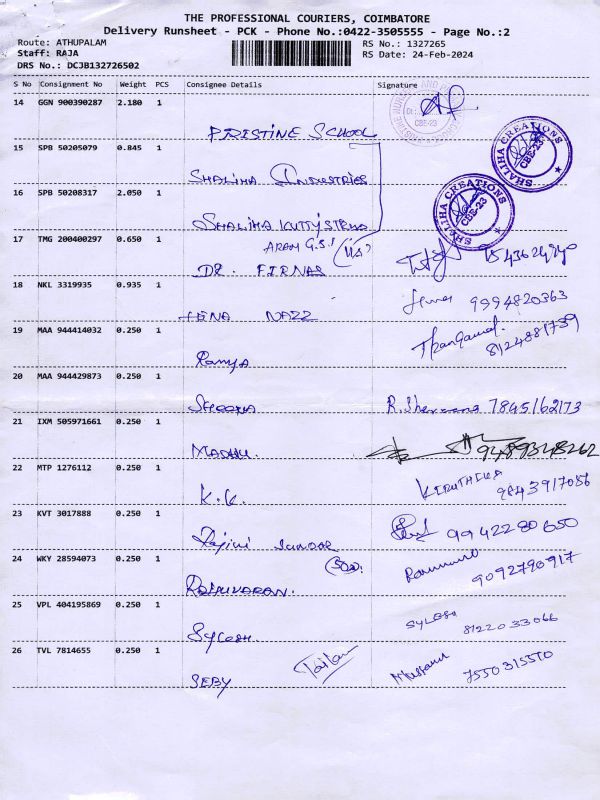 THE PROFESSIONAL COURIERS, COIMBATORE
Delivery Runsheet - PCK - Phone No.:0422-3505555 - Page No.:2
Route: ATHUPALAM RS No.: 1327265
Staff: RAJA RS Date: 24-Feb-2024
DRS No.: DCJB132726502
S No Consignment No Weight PCS Consignee Details Signature
14 GGN 900390287 2.180 1
PRISTINE SCHOOL
CBE-23
15 SPB 50205079 0.845 1
SHALIHA INDUSTRIES
SHALIHA CREATIONS CBE-23
16 SPB 50208317 2.050 1
SHALIHA
SHALIHA CREATIONS CBE-23
17 TMG 200400297 0.650 1
DR. FIRNAS
18 NKL 3319935 0.935 1
HENA NAZZ 9994820363
19 MAA 944414032 0.250 1
Ramya Thangamal 8124881759
20 MAA 944429873 0.250 1
R. 7845162173
21 IXM 505971661 0.250 1
MADHU. 9489348262
22 MTP 1276112 0.250 1
K.K. KIRUTHIKA 9843917086
23 KVT 3017888 0.250 1
Rajini 9942280650
24 WKY 28594073 0.250 1
9092790917
25 VPL 404195869 0.250 1
Sylesh. SYLESH 8122033066
26 TVL 7814655 0.250 1
SEBY 7550315550